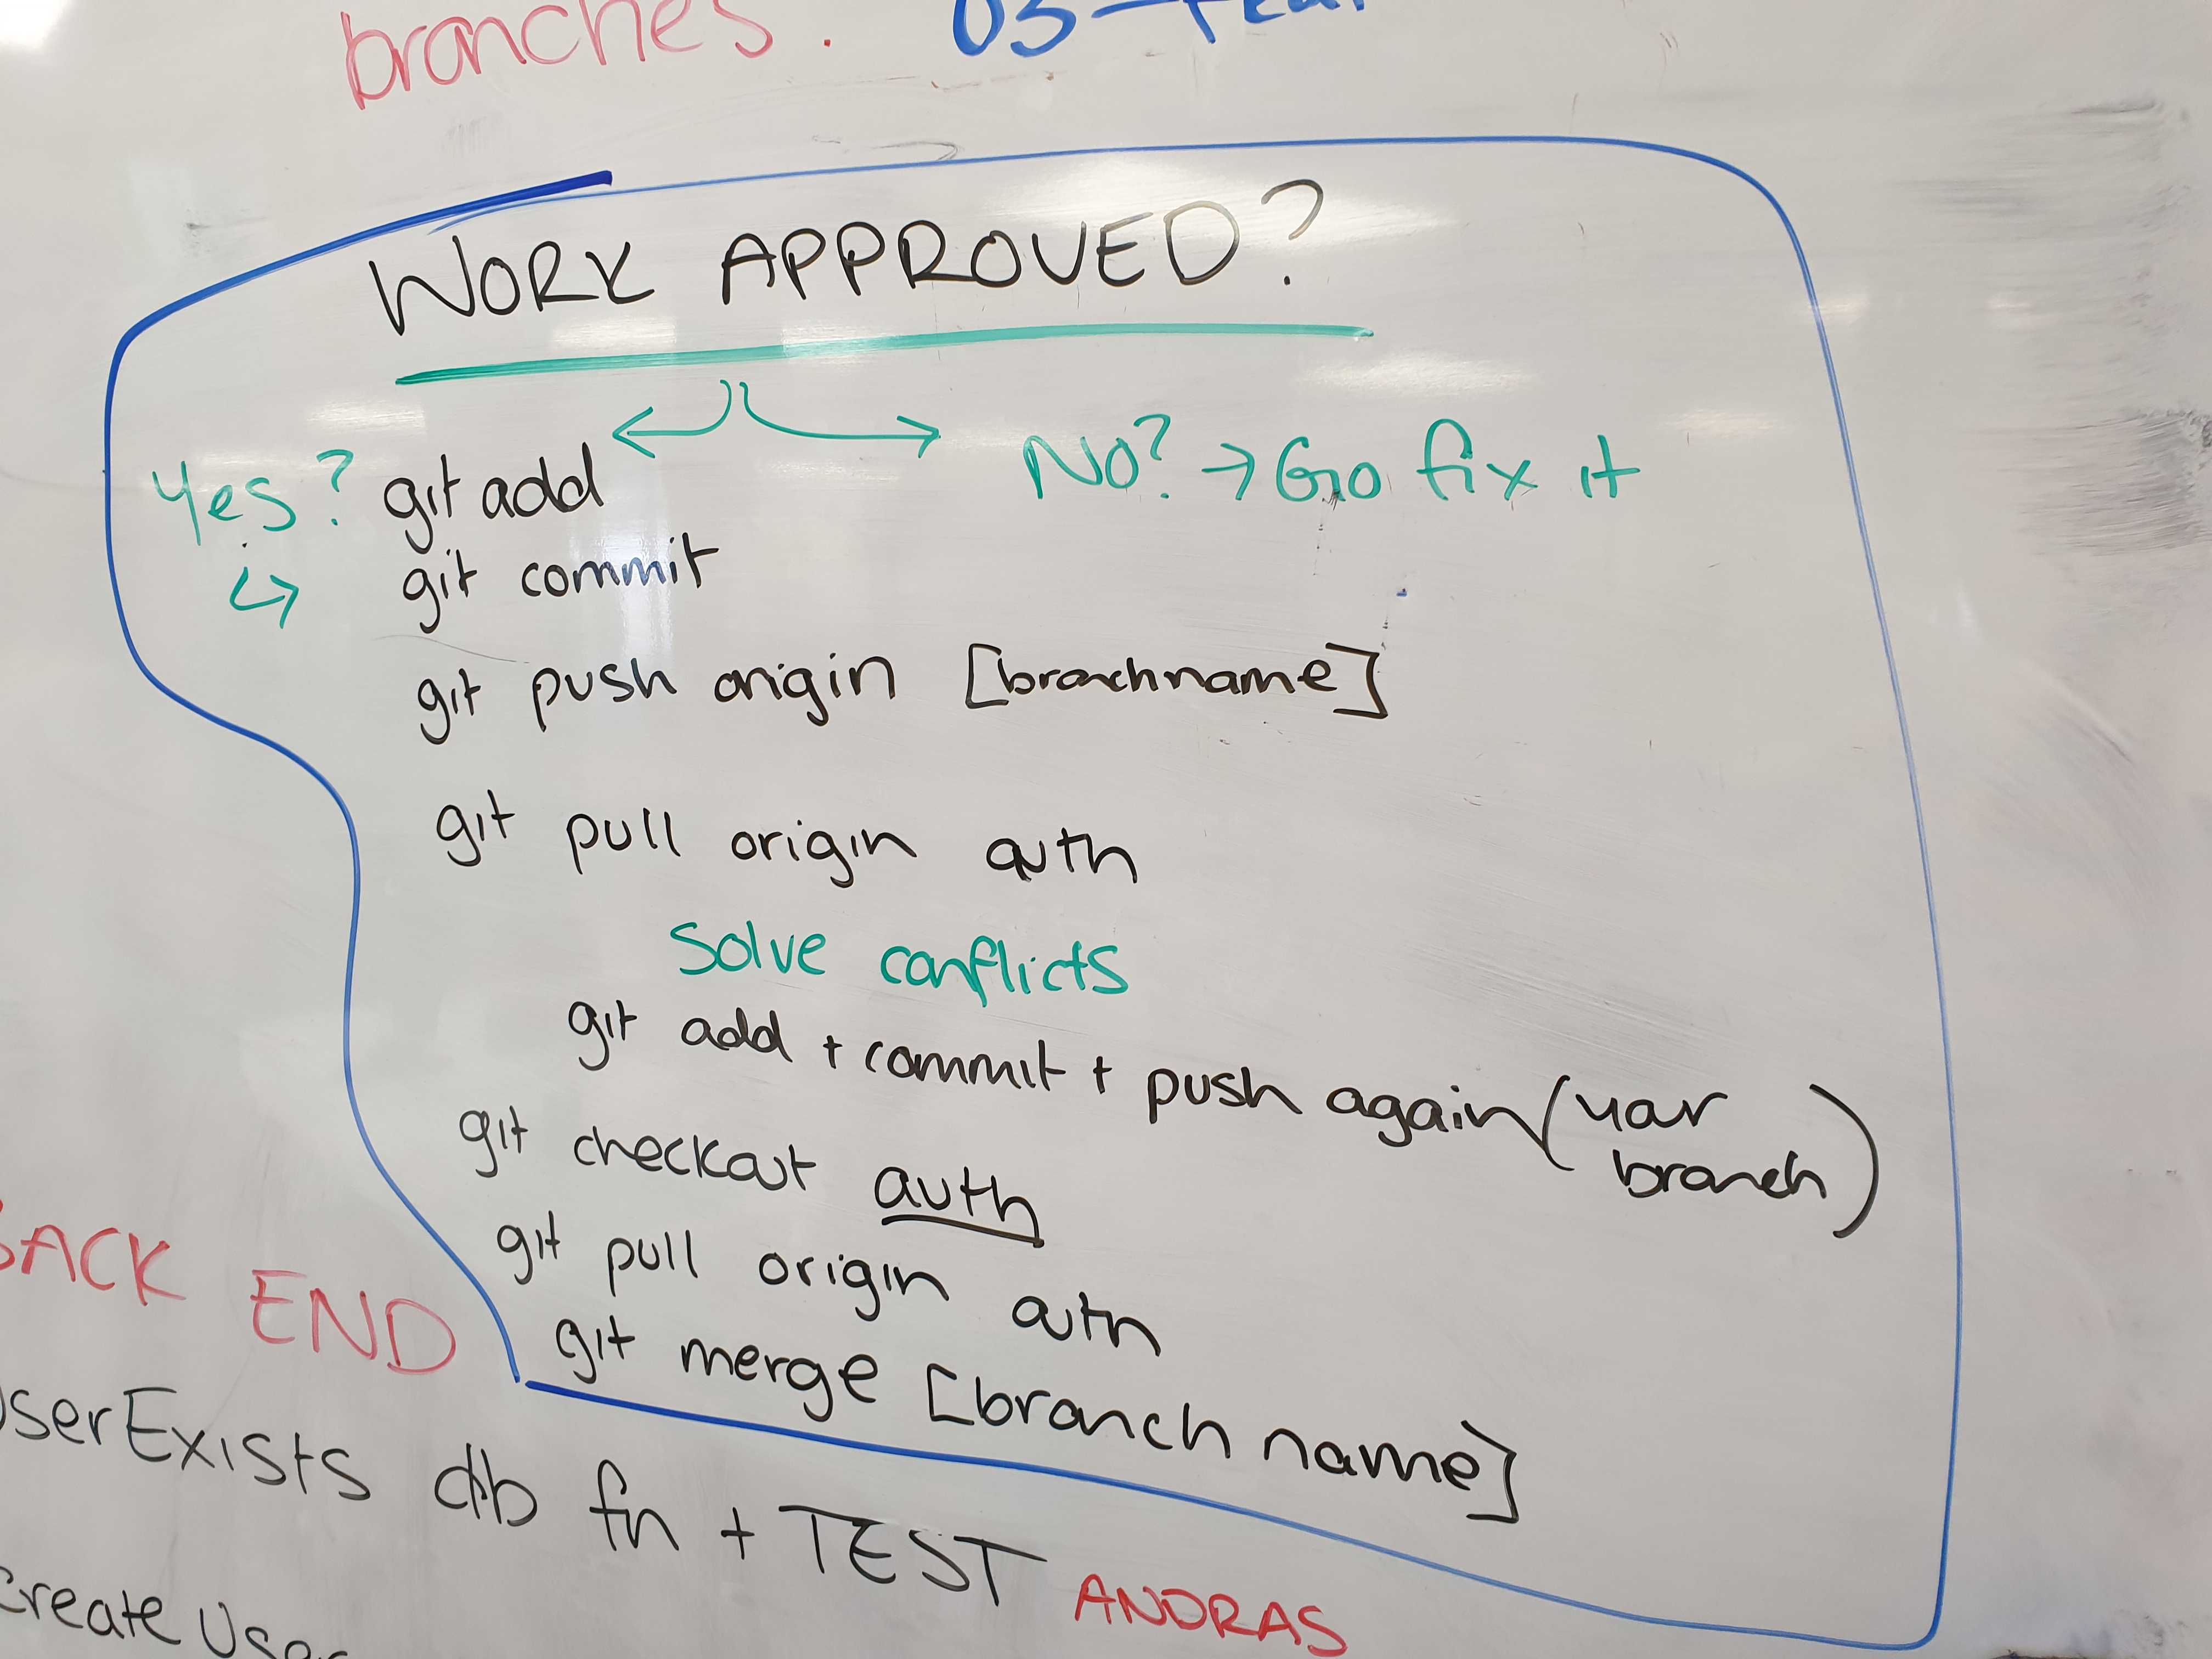 branches.
WORK APPROVED?
Yes? git add
No? → Go fix it
↳ git commit
git push origin [branchname]
git pull origin auth
Solve conflicts
git add + commit + push again (your
branch)
git checkout auth
git pull origin auth
git merge [branch name]
BACK END
UserExists db fn + TEST ANDRAS
Create User